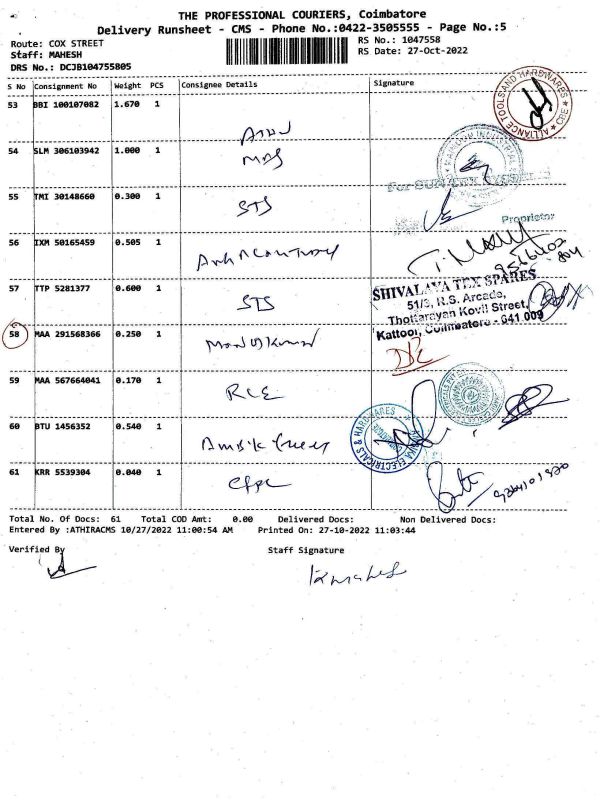 THE PROFESSIONAL COURIERS, Coimbatore
Delivery Runsheet - CMS - Phone No.:0422-3505555 - Page No.:5
Route: COX STREET
RS No.: 1047558
Staff: MAHESH
RS Date: 27-Oct-2022
DRS No.: DCJB104755805
S No Consignment No Weight PCS Consignee Details Signature
53 BBI 100107082 1.670 1
ALLIANCE TOOLS AND HARDWARES ★ CBE ★
54 SLM 306103942 1.000 1
For SUN TEX SYSTEMS
55 TMI 30148660 0.300 1 STS
Proprietor
56 IXM 50165459 0.505 1
57 TTP 5281377 0.600 1 STS
SHIVALAYA TEX SPARES
51/3, R.S. Arcade,
Thottarayan Kovil Street,
Kattoor, Coimbatore - 641 009
58 MAA 291568366 0.250 1
59 MAA 567664041 0.170 1 RCE
60 BTU 1456352 0.540 1
ELECTRICALS & HARDWARES
61 KRR 5539304 0.040 1
Total No. Of Docs: 61 Total COD Amt: 0.00 Delivered Docs: Non Delivered Docs:
Entered By :ATHIRACMS 10/27/2022 11:00:54 AM Printed On: 27-10-2022 11:03:44
Verified By Staff Signature